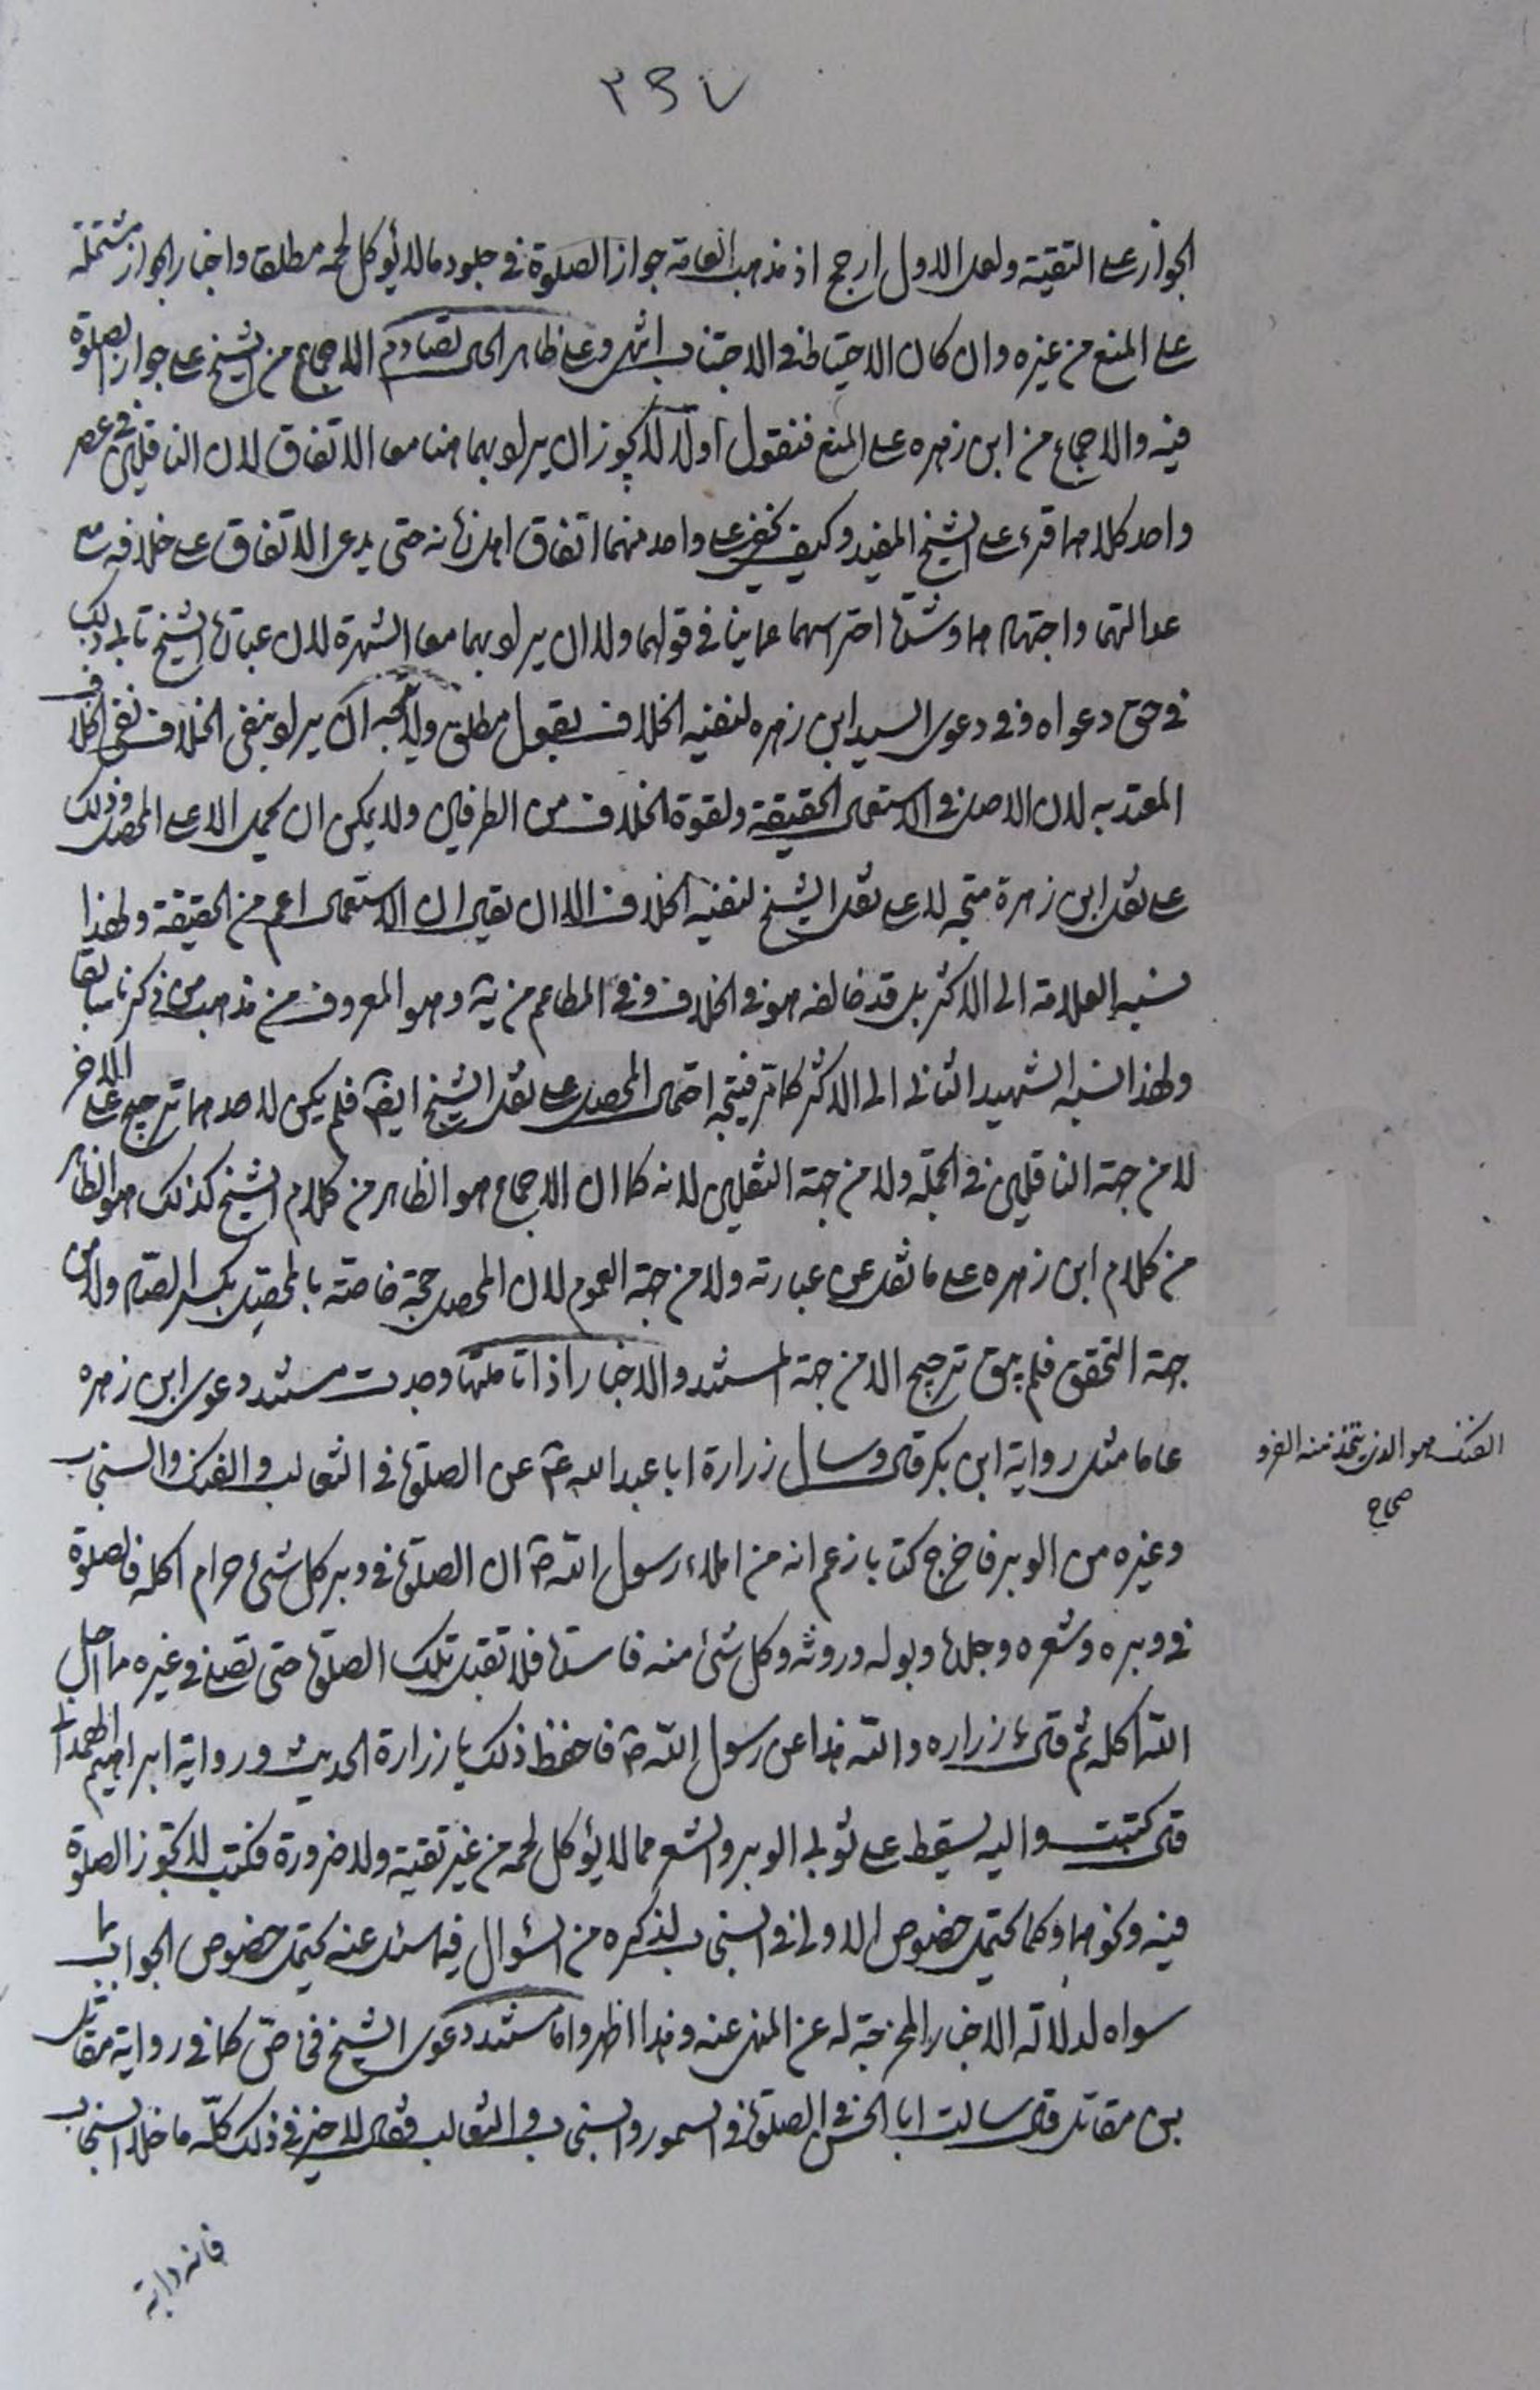 ٣٩٧
الجواز على التقية ولعل الاول ارجح اذ مذهب العامة جواز الصلوة في جلود ما لا يؤكل لحمه مطلقا واخبار الجواز مشتملة
على المنع من غيره وان كان الاحتياط في الاجتناب اشهر وعلى ظاهر الحال تصادم الاجماع من الشيخ على جواز الصلوة
فيه والاجماع من ابن زهره على المنع فنقول اولا لا يجوز ان يراد بهما هنا معا الاتفاق لان الناقلين في عصر
واحد كلاهما قرء على الشيخ المفيد وكيف يخفى على واحد منهما اتفاق اهل زمانه حتى يدعى الاتفاق على خلافه مع
عدالتهما واجتهادهما وشدة احتراسهما عما ينافي قولهما ولا ان يراد بهما معا الشهرة لان عبارة الشيخ تابى ذلك
في حق دعواه وفي دعوى السيد ابن زهره لنفيه الخلاف بقول مطلق ولا يتجه ان يراد بنفي الخلاف نفي الخلاف
المعتد به لان الاصل في الاستعمال الحقيقة ولقوة الخلاف من الطرفين ولا يمكن ان يحمل الا على المحصل وذلك
على نقل ابن زهرة متجه لا على نقل الشيخ لنفيه الخلاف الا ان يقال ان الاستعمال اعم من الحقيقة ولهذا
نسبه العلامة الى الاكثر بل قد خالفه هو في الخلاف وفي المطاعم من ية وهو المعروف من مذهب من ذكرنا سابقا
ولهذا نسبه الشهيد الثاني الى الاكثر كما تر فيتجه احتمال المحصل على نقل الشيخ ايضا فلم يكن لاحدهما ترجيح على الاخر
لا من جهة الناقلين في الجملة ولا من جهة النقلين لانه كما ان الاجماع هو الظاهر من كلام الشيخ كذلك هو الظاهر
من كلام ابن زهره على ما نقل عن عبارته ولا من جهة العموم لان المحصل حجة خاصة بالمحصل بكسر الصاد ولا من
جهة التحقق فلم يبق ترجيح الا من جهة المستند والاخبار اذا تاملتها وجدت مستند دعوى ابن زهره
عاما مثل رواية ابن بكر قال وسال زرارة ابا عبد الله ع عن الصلوة في الثعالب والفنك والسنجاب
وغيره من الوبر فاخرج كتابا زعم انه من املاء رسول الله ص ان الصلوة في وبر كل شئ حرام اكله فالصلوة
في وبره وشعره وجلده وبوله وروثه وكل شئ منه فاسدة فلا تقبل تلك الصلوة حتى تصلى في غيره مما احل
الله اكله ثم قال يا زراره والله هذا عن رسول الله ص فاحفظ ذلك يا زرارة الحديث ورواية ابراهيم الهمداني
قال كتبت واليه يسقط على ثوبي الوبر والشعر مما لا يؤكل لحمه من غير تقية ولا ضرورة فكتب لا تجوز الصلوة
فيه ونحوهما وكما يحتمل خصوص الاولى في السنجاب لذكره من السؤال فيما سئل عنه يحتمل خصوص الجواب بما
سواه لدلالة الاخبار المخرجة له عن المنهى عنه وهذا اظهر واما مستند دعوى الشيخ فخاص كما في رواية مقاتل
بن مقاتل قال سالت ابا الحسن ع الصلوة في السمور والسنجاب والثعالب فقال لا خير في ذلك كلّه ما خلا السنجاب
فانه دابة
الفنك هو الذي يتخذ منه الفرو
صحاح